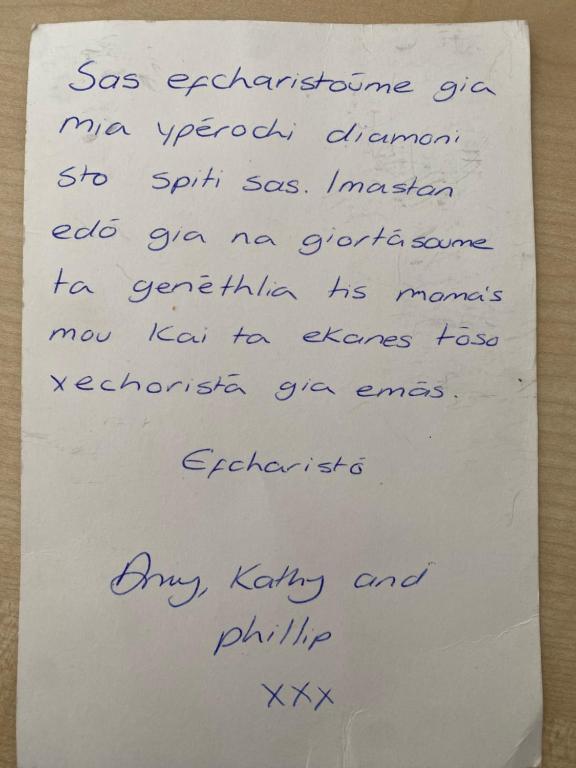 Sas efcharistoúme gia
mia ypérochi diamoni
sto spiti sas. Imastan
edó gia na giortásoume
ta genéthlia tis mamás
mou kai ta ekanes tóso
xechoristá gia emás.
Efcharistó
Amy, Kathy and
phillip
xxx